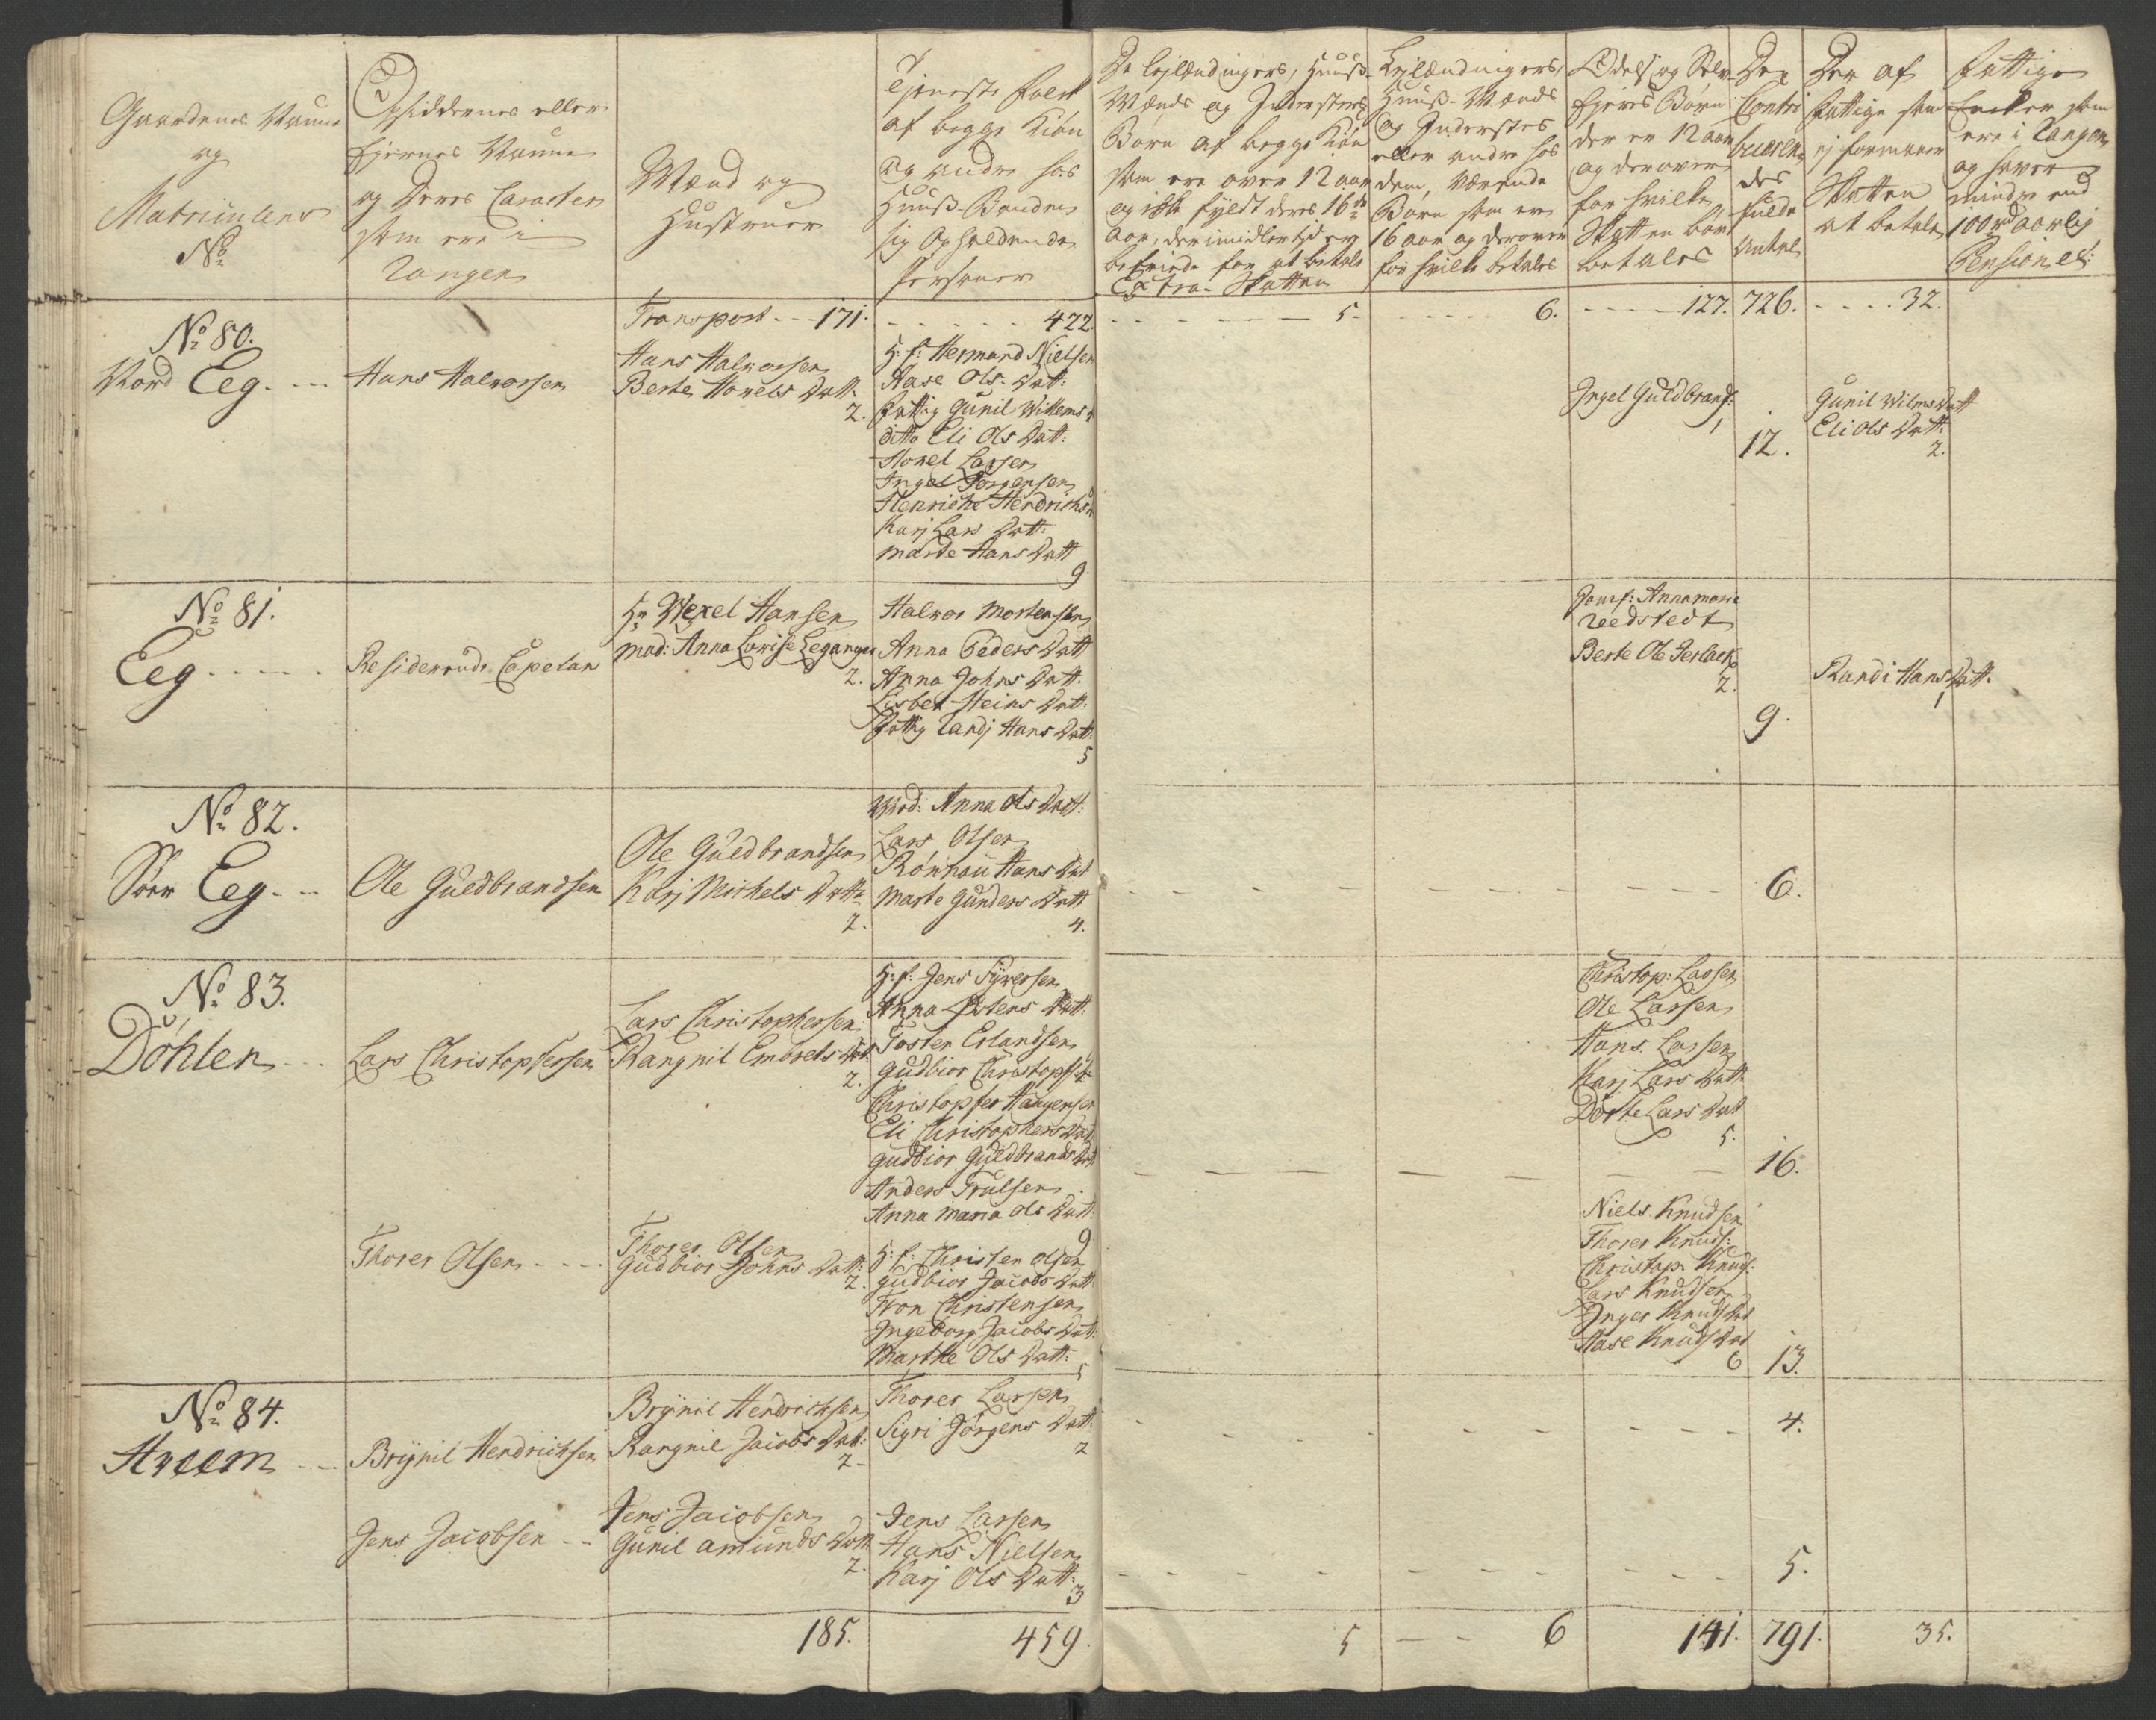 Gaardenes Navne
og
Matriculens
No
Opsiddernes eller
Ejernes Navne
og Deres Caracter
som ere i
Rangen
Mænd og
Hustruer
Tjeneste Folk
af begge Kiøn
og andre hos
Huus-Bonden
sig Opholdende
Personer
De Lejlændingers, Huus-
Mænds og Indersters
Børn af begge Kiøn
som ere over 12 aar
og ikke fyldt deres 16de
Aar, der imidlertid er
befriede for at betale
Extra-Skatten
Lejlændingers,
Huus-Mænds
og Inderstes
eller andre hos
dem, værende
Børn som ere
16 aar og derover
for hvilke betales
Odels og Selv-
Ejeres Børn
der er 12 aar
og derover
for hvilke
Skatten bør
betales
Den
Contri
bueren
des
fulde
Antal
Der af
fattige som
ej formaaer
Skatten
at betale
Fattige
Encker som
ere i Rangen
og haver
mindre end
100 rd aarlig
Pension etc:
Transport - - 171. - - - - - 422. - - - - - - 5. - - - - - 6. - - - - 127. 726. - - - - 32.
No 80.
Nord Eeg - - -
Hans Halvorsen
Hans Halvorsen
Berte Hovels Datt:
2.
H: f: Hermand Nielsen
Aase Ols-Datt:
Fattig Gunil Willems D
ditto Eli Ols Datt:
Hovel Larsen
Ingel Jørgensen
Henriche Hendrichs D
Karj Lars Datt:
Marte Hans Datt
9.
Ingel Guldbrands:
1
12.
Gunil Wilms Datt
Eli Ols Datt:
2.
No 81.
Eeg - - - - -
Residerende Capelan
Hr Wexel Hansen
Mad: Anna Lovise Leganger
2.
Halvor Mortensen
Anna Peders Datt
Anna Johns Datt.
Lisbet Steins Datt:
Fattig Randj Hans Datt:
5
Jomf: Annamarie
Veedstedt
Berte Ole Gerlach
2.
9.
Randi Hans Datt.
1
No 82.
Søer Eeg - - -
Ole Guldbrandsen
Ole Guldbrandsen
Karj Michels Datt:
2.
Mad: Anna Ols Datt:
Lars Olsen
Rønnau Hans Dat
Marte Gunders Datt
4.
6.
No 83.
Døhlen - - -
Lars Christophersen
Lars Christophersen
Rangnil Embrets Dat
2.
H: f: Jens Syversen
Anna Østens Datt:
Tosten Erlandsen
Gudbior Christophs D
Christopher Haagensen
Eli Christophers Dat
Gudbior Guldbrands Dat
Anders Trulsen
Anna Maria Ols Datt:
9
Christop: Larsen
Ole Larsen
Hans Larsen
Karj Lars Datt:
Dorte Lars Dat
5.
16.
Thorer Olsen - - - -
Thorer Olsen
Gudbior Johns Datt:
2.
H: f: Christen Olsen
Gudbior Jacobs Datt:
Tron Christensen
Ingeborg Jacobs Dat:
Marthe Ols Datt:
5
Niels Knudsen
Thorer Knuds:
Christop: Knuds:
Lars Knudsen
Inger Knuds Dat
Aase Knuds Dat
6
13.
No 84.
Hveem - - -
Brynil Hendrichsen
Brynil Hendrichsen
Rangnil Jacobs Datt:
2-
Thorer Larsen
Sigri Jørgens Datt:
2
4.
Jens Jacobsen - -
Jens Jacobsen
Gunil Amunds Datt
2.
Jens Larsen
Hans Nielsen
Karj Ols Datt:
3
5.
185. 459. 5 - - - 6 141. 791. 35.